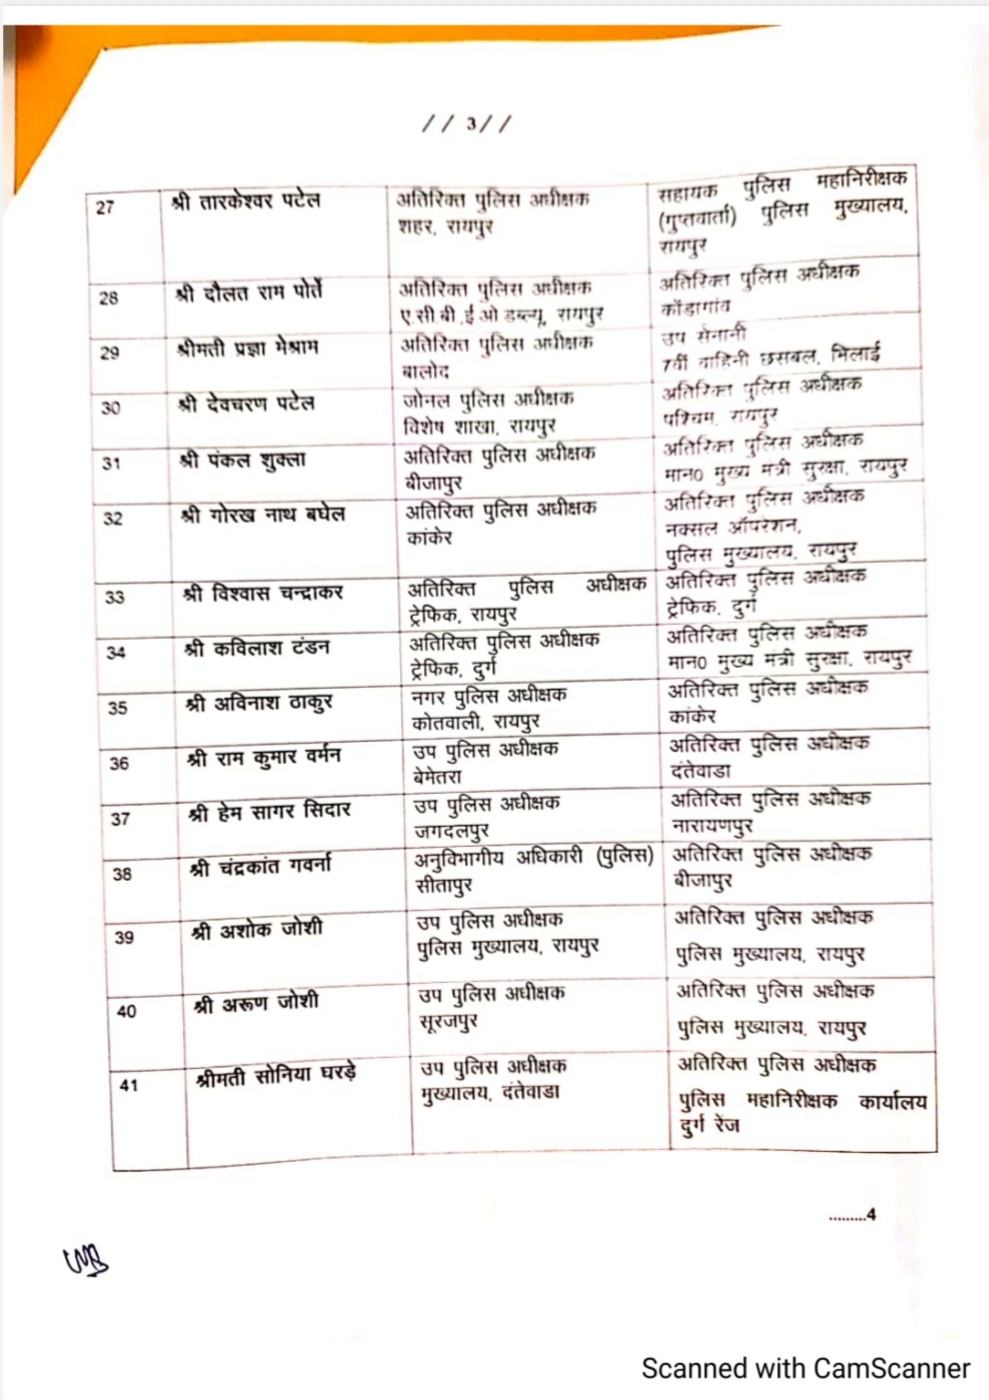 // 3 //
27 श्री तारकेश्वर पटेल अतिरिक्त पुलिस अधीक्षक सहायक पुलिस महानिरीक्षक
शहर, रायपुर (गुप्तवार्ता) पुलिस मुख्यालय,
रायपुर
28 श्री दौलत राम पोर्ते अतिरिक्त पुलिस अधीक्षक अतिरिक्त पुलिस अधीक्षक
ए.सी.बी.ई ओ डब्ल्यू, रायपुर कोंडागांव
29 श्रीमती प्रज्ञा मेश्राम अतिरिक्त पुलिस अधीक्षक उप सेनानी
बालोद 7वीं वाहिनी छसबल, भिलाई
30 श्री देवचरण पटेल जोनल पुलिस अधीक्षक अतिरिक्त पुलिस अधीक्षक
विशेष शाखा, रायपुर पश्चिम, रायपुर
31 श्री पंकल शुक्ला अतिरिक्त पुलिस अधीक्षक अतिरिक्त पुलिस अधीक्षक
बीजापुर मान0 मुख्य मंत्री सुरक्षा, रायपुर
32 श्री गोरख नाथ बघेल अतिरिक्त पुलिस अधीक्षक अतिरिक्त पुलिस अधीक्षक
कांकेर नक्सल ऑपरेशन,
पुलिस मुख्यालय, रायपुर
33 श्री विश्वास चन्द्राकर अतिरिक्त पुलिस अधीक्षक अतिरिक्त पुलिस अधीक्षक
ट्रेफिक, रायपुर ट्रेफिक, दुर्ग
34 श्री कविलाश टंडन अतिरिक्त पुलिस अधीक्षक अतिरिक्त पुलिस अधीक्षक
ट्रेफिक, दुर्ग मान0 मुख्य मंत्री सुरक्षा, रायपुर
35 श्री अविनाश ठाकुर नगर पुलिस अधीक्षक अतिरिक्त पुलिस अधीक्षक
कोतवाली, रायपुर कांकेर
36 श्री राम कुमार वर्मन उप पुलिस अधीक्षक अतिरिक्त पुलिस अधीक्षक
बेमेतरा दंतेवाडा
37 श्री हेम सागर सिदार उप पुलिस अधीक्षक अतिरिक्त पुलिस अधीक्षक
जगदलपुर नारायणपुर
38 श्री चंद्रकांत गवर्ना अनुविभागीय अधिकारी (पुलिस) अतिरिक्त पुलिस अधीक्षक
सीतापुर बीजापुर
39 श्री अशोक जोशी उप पुलिस अधीक्षक अतिरिक्त पुलिस अधीक्षक
पुलिस मुख्यालय, रायपुर पुलिस मुख्यालय, रायपुर
40 श्री अरूण जोशी उप पुलिस अधीक्षक अतिरिक्त पुलिस अधीक्षक
सूरजपुर पुलिस मुख्यालय, रायपुर
41 श्रीमती सोनिया घरडे़ उप पुलिस अधीक्षक अतिरिक्त पुलिस अधीक्षक
मुख्यालय, दंतेवाडा पुलिस महानिरीक्षक कार्यालय
दुर्ग रेंज
.........4
Scanned with CamScanner